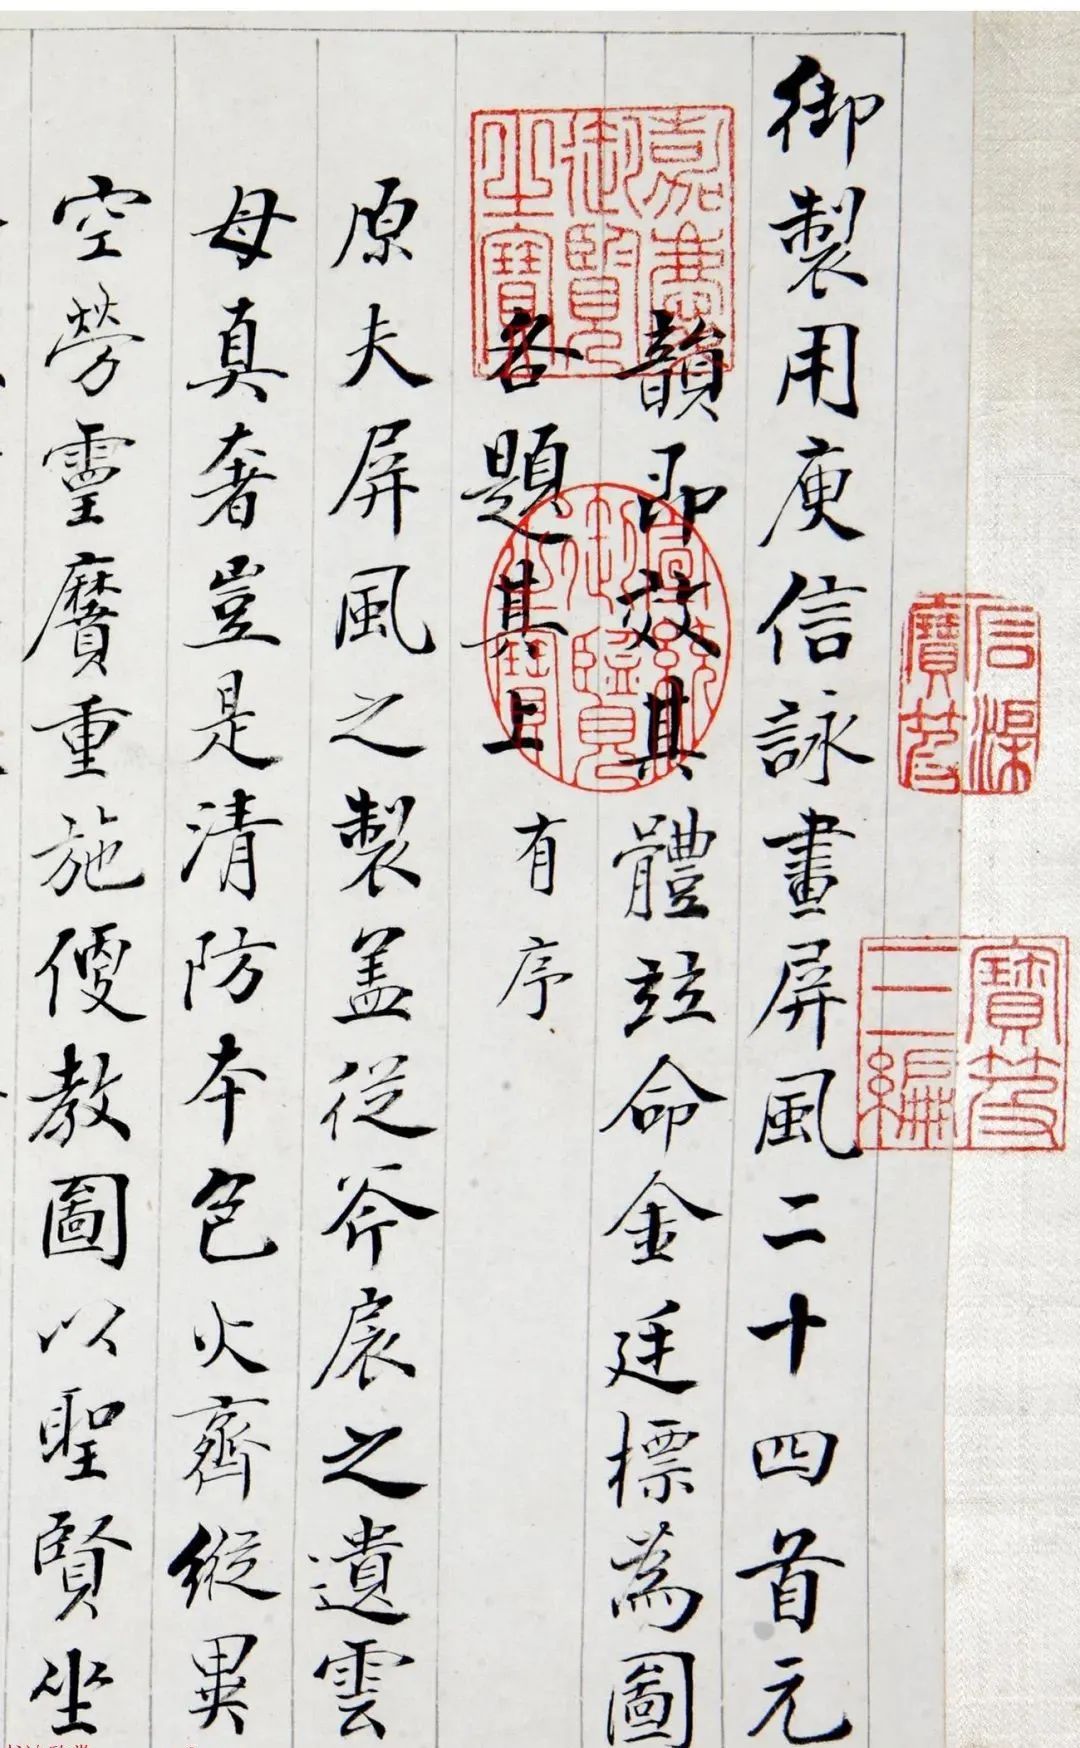 御製用庾信詠畫屏風二十四首元
韻即效其體竝命金廷標為圖
各題其上有序
原夫屏風之製盖從斧扆之遺雲
母真奢豈是清防本色火齊縱異
空勞靈贋重施便教圖以聖賢坐
嘉慶御覽之寶
宣統御覽之寶
石渠寶笈
寶笈三編